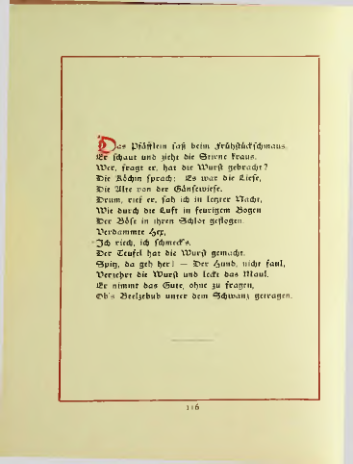 Das Pfäfflein saß beim Frühstückschmaus.
Er schaut und zieht die Stirne kraus.
Wer, fragt er, hat die Wurst gebracht?
Die Köchin sprach: Es war die Liese,
Die Alte von der Gänsewiese.
Drum, rief er, sah ich in letzter Nacht,
Wie durch die Luft in feurigem Bogen
Der Böse in ihren Schlot geflogen.
Verdammte Hex,
Ich riech, ich schmeck's,
Der Teufel hat die Wurst gemacht.
Spitz, da geh her! — Der Hund, nicht faul,
Verzehrt die Wurst und leckt das Maul.
Er nimmt das Gute, ohne zu fragen,
Ob's Beelzebub unter dem Schwanz getragen.
116